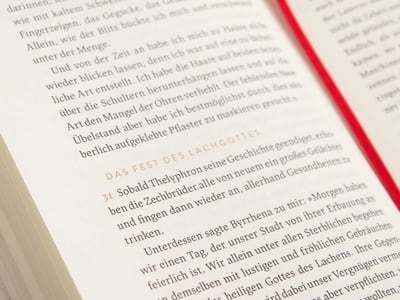 darinnen;
wie mit kaltem Schwe
Fingerzeigen, das Gegucke, das G
Allein, wie der Blitz bückte ich mich und versch
unter der Menge.
Und von der Zeit an habe ich mich zu Hause
wieder blicken lassen; denn ich war auf eine so läche
liche Art entstellt. Ich habe die Haare auf beiden Seiten
über die Schultern herunterhängen lassen und auf die
Art den Mangel der Ohren verhehlt. Der fehlenden Nase
Übelstand aber habe ich bestmöglichst durch dies säu-
berlich aufgeklebte Pflaster zu maskieren gesucht.«
DAS FEST DES LACHGOTTES
31 Sobald Thelyphron seine Geschichte geendiget, erho-
ben die Zechbrüder alle von neuem ein großes Gelächter
und fingen dann wieder an, allerhand Gesundheiten zu
trinken.
Unterdessen sagte Byrrhena zu mir: »Morgen haben
wir einen Tag, der unsrer Stadt von ihrer Erbauung an
feierlich ist. Wir allein unter allen Sterblichen begehen
an demselben mit lustigen und fröhlichen Gebräuchen
des heiligen Gottes des Lachens. Ihre Gegen-
wird dabei unser Vergnügen verme
aber verpflichten,